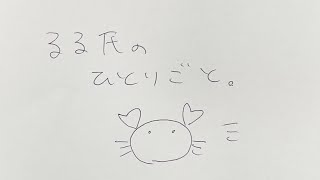 るる氏の
ひとりごと。